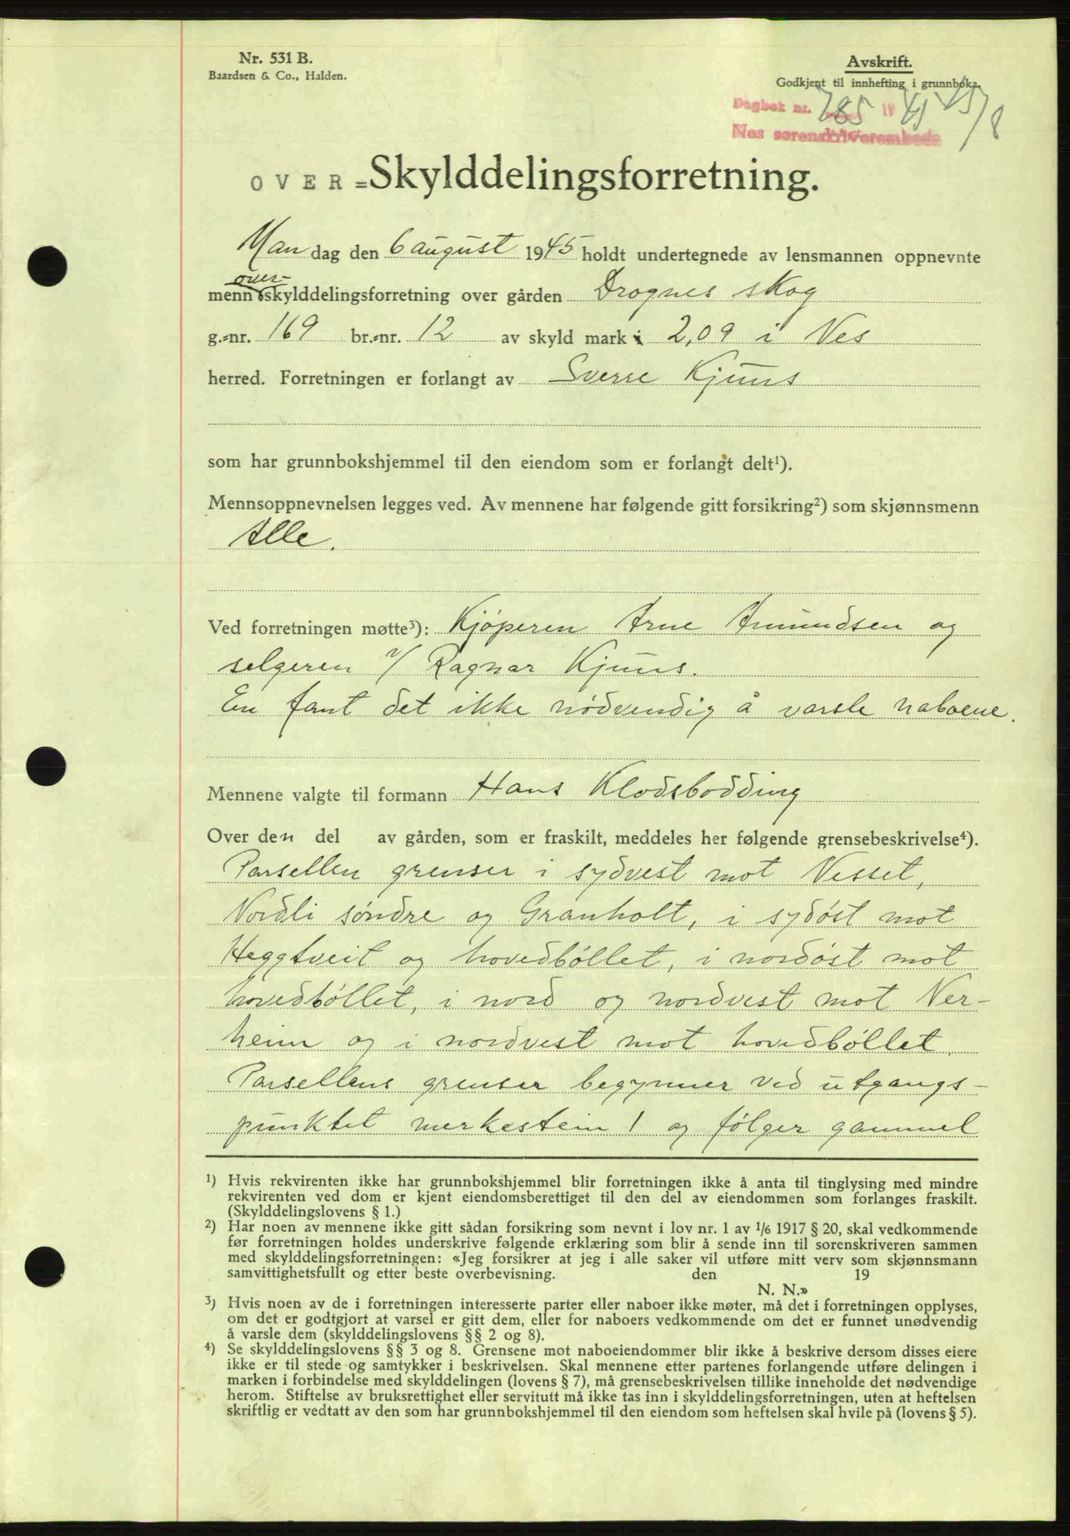 Nr. 531 B.
Baardsen & Co., Halden.
Avskrift.
Godkjent til innhefting i grunnboka.
Dagbok nr. 785 19 45 15/8
Nes sorenskriverembede
OVER=Skylddelingsforretning.
Man dag den 6 august 1945 holdt undertegnede av lensmannen oppnevnte
over-
menn skylddelingsforretning over gården Drognes skog
g.-nr. 169 br.-nr. 12 av skyld mark 2,09 i Nes
herred. Forretningen er forlangt av Sverre Kjuus
som har grunnbokshjemmel til den eiendom som er forlangt delt¹).
Mennsoppnevnelsen legges ved. Av mennene har følgende gitt forsikring²) som skjønnsmenn
Alle.
Ved forretningen møtte³): Kjøperen Arne Amundsen og
selgeren v/ Ragnar Kjuus.
En fant det ikke nødvendig å varsle naboene.
Mennene valgte til formann Hans Klodsbødding
Over den del av gården, som er fraskilt, meddeles her følgende grensebeskrivelse⁴).
Parsellen grenser i sydvest mot Nesset,
Nordli søndre og Granholt, i sydøst mot
Heggtveit og hovedbøllet, i nordøst mot
hovedbøllet, i nord og nordvest mot Ner-
heim og i nordvest mot hovedbøllet.
Parsellens grenser begynner ved utgangs-
punktet merkestein 1 og følger gammel
¹) Hvis rekvirenten ikke har grunnbokshjemmel blir forretningen ikke å anta til tinglysing med mindre
rekvirenten ved dom er kjent eiendomsberettiget til den del av eiendommen som forlanges fraskilt.
(Skylddelingslovens § 1.)
²) Har noen av mennene ikke gitt sådan forsikring som nevnt i lov nr. 1 av 1/6 1917 § 20, skal vedkommende
før forretningen holdes underskrive følgende erklæring som blir å sende inn til sorenskriveren sammen
med skylddelingsforretningen: «Jeg forsikrer at jeg i alle saker vil utføre mitt verv som skjønnsmann
samvittighetsfullt og etter beste overbevisning. den 19
N. N.»
³) Hvis noen av de i forretningen interesserte parter eller naboer ikke møter, må det i forretningen opplyses,
om det er godtgjort at varsel er gitt dem, eller for naboers vedkommende om det er funnet unødvendig
å varsle dem (skylddelingslovens §§ 2 og 8).
⁴) Se skylddelingslovens §§ 3 og 8. Grensene mot naboeiendommer blir ikke å beskrive dersom disses eiere
ikke er til stede og samtykker i beskrivelsen. Skal mennene etter partenes forlangende utføre delingen i
marken i forbindelse med skylddelingen (lovens § 7), må grensebeskrivelsen tillike inneholde det nødvendige
herom. Stiftelse av bruksrettighet eller servitutt må ikke tas inn i skylddelingsforretningen, uten at heftelsen
skriftlig er vedtatt av den som har grunnbokshjemmel til den eiendom som heftelsen skal hvile på (lovens § 5).